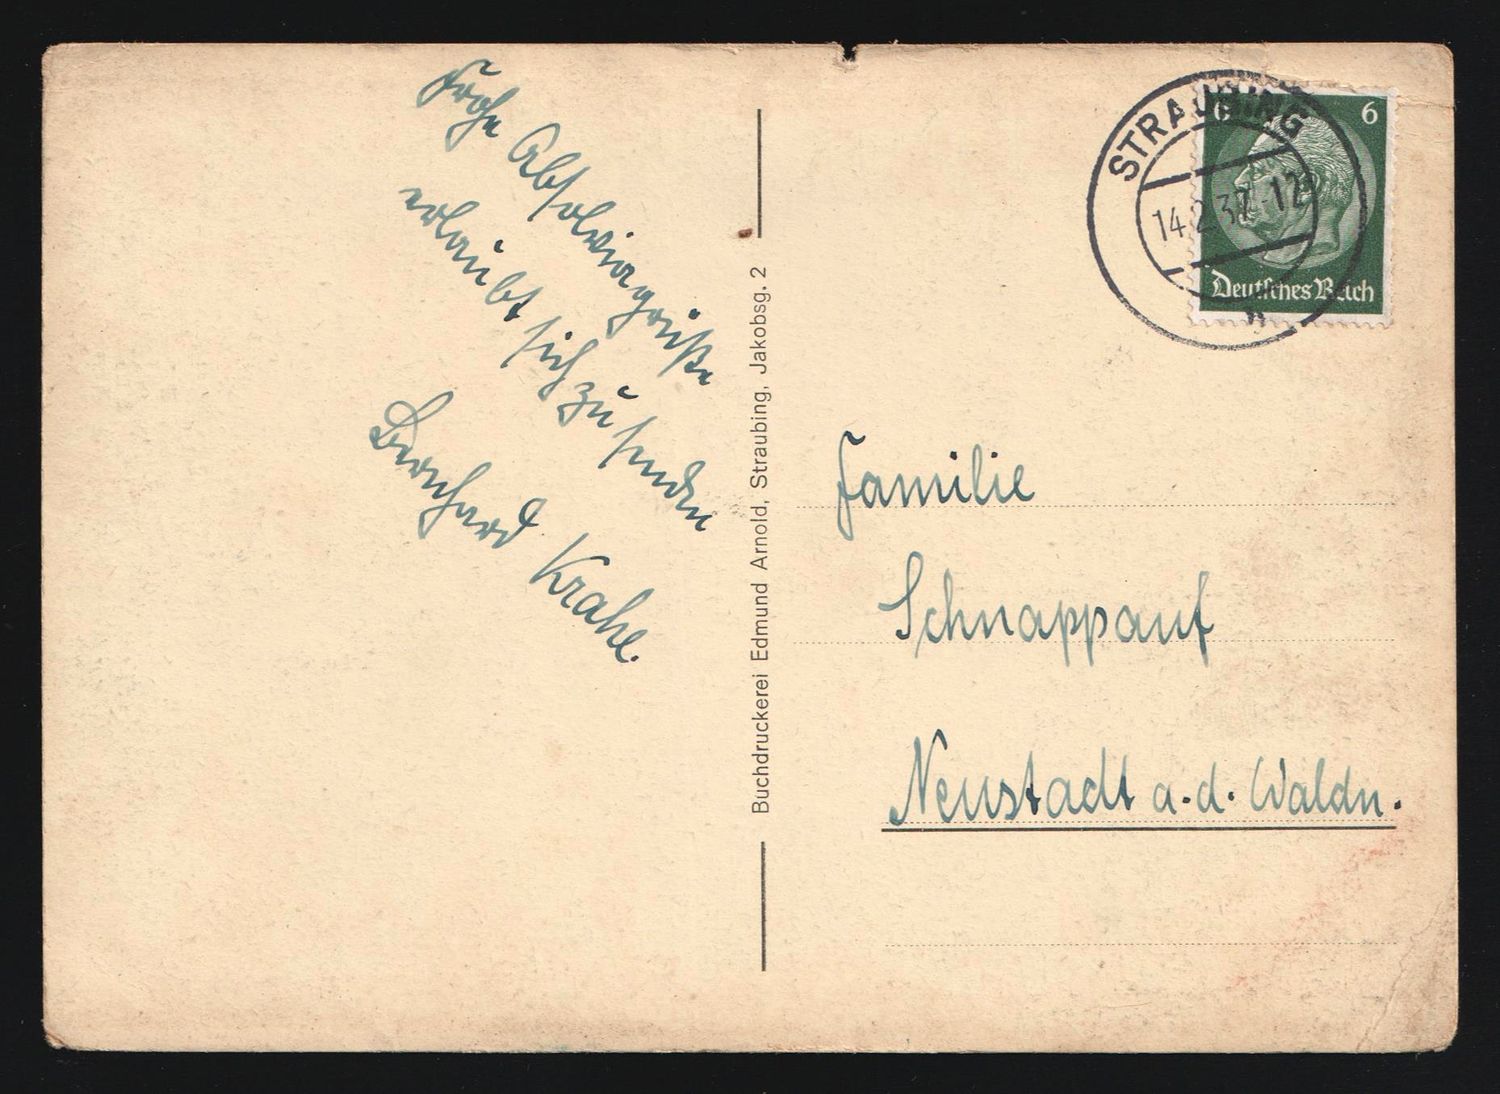 Frohe Absolviagrüße
erlaubt sich zu senden
Bernhard Krahl.
Buchdruckerei Edmund Arnold, Straubing, Jakobsg. 2
STRAUBING
14.2.37.-12
6 6
Deutsches Reich
Familie
Schnappauf
Neustadt a.d. Waldn.